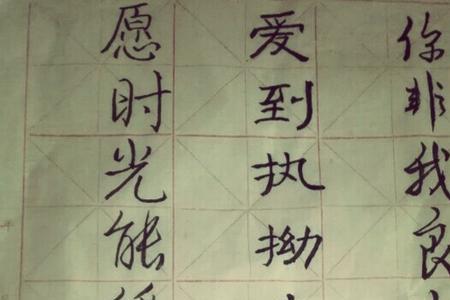 你非我良
爱到执拗
愿时光能